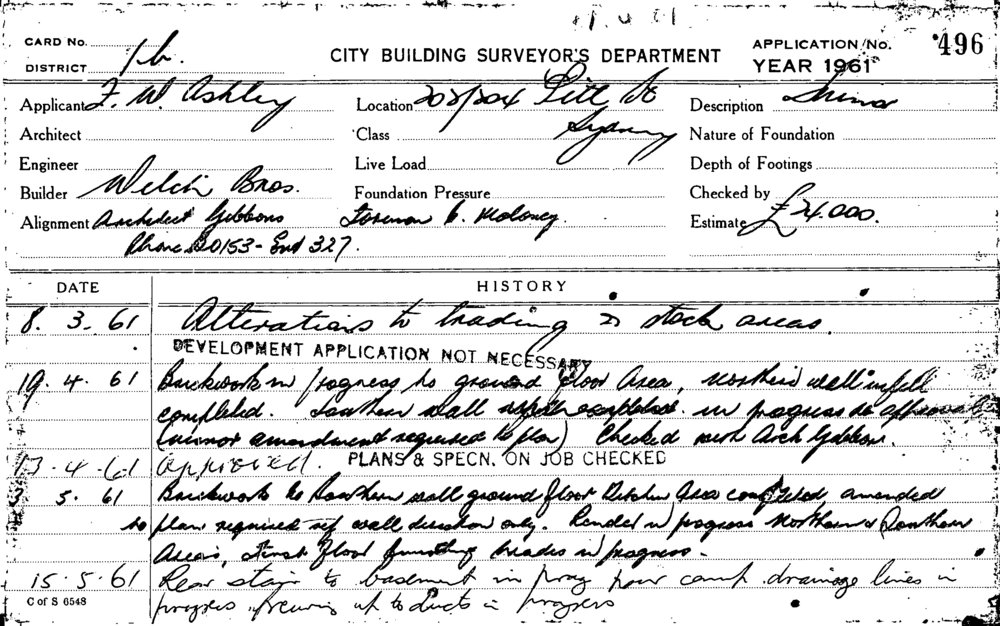 CARD No.
1b.
DISTRICT
CITY BUILDING SURVEYOR'S DEPARTMENT
APPLICATION No. 496
YEAR 1961
Applicant F. W. Ashley Location 202/204 Pitt St Description Minor
Architect Class Sydney Nature of Foundation
Engineer Live Load Depth of Footings
Builder Welch Bros. Foundation Pressure Checked by
Alignment Architect Gibbons Foreman C. Moloney. Estimate £24.000.
Phone 0153 - 327.
DATE HISTORY
8. 3. 61 Alterations to trading & stock areas.
DEVELOPMENT APPLICATION NOT NECESSARY
19. 4. 61 Brickwork in progress to ground floor Area, northern wall infill
completed. Southern wall in progress to approval
(minor amendment required to plan) Checked with Arch Gibbons.
13-4-61 approved. PLANS & SPECN. ON JOB CHECKED
5. 61 Brickwork to Southern wall ground floor Kitchen Area completed amended
to plan required wall only. Render in progress Northern & Southern
Areas, First Floor trades in progress.
15.5.61 Rear stair to basement in prog drainage lines in
progress up to ducts in progress
C of S 6548